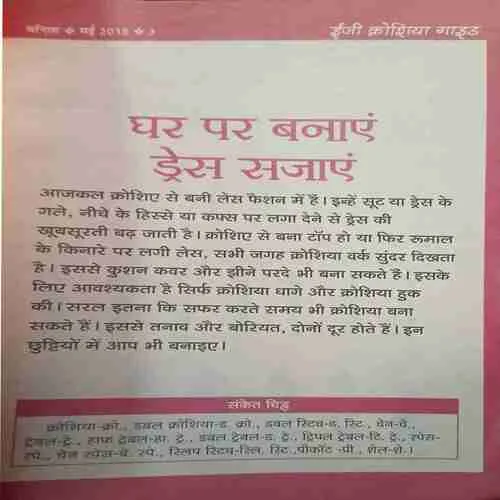 वनिता ❖ मई 2018 ❖ 3
ईज़ी क्रोशिया गाइड
घर पर बनाएं
ड्रेस सजाएं
आजकल क्रोशिए से बनी लेस फैशन में हैं। इन्हें सूट या ड्रेस के
गले, नीचे के हिस्से या कफ्स पर लगा देने से ड्रेस की
खूबसूरती बढ़ जाती है। क्रोशिए से बना टॉप हो या फिर रूमाल
के किनारे पर लगी लेस, सभी जगह क्रोशिया वर्क सुंदर दिखता
है। इससे कुशन कवर और झीने परदे भी बना सकते हैं। इसके
लिए आवश्यकता है सिर्फ क्रोशिया धागे और क्रोशिया हुक
की। सरल इतना कि सफर करते समय भी क्रोशिया बना
सकते हैं। इससे तनाव और बोरियत, दोनों दूर होते हैं। इन
छुट्टियों में आप भी बनाइए।
संकेत चिह्न
क्रोशिया-क्रो., डबल क्रोशिया-ड. क्रो., डबल स्टिच-ड. स्टि., चेन-चे.,
ट्रेबल-ट्रे., हाफ ट्रेबल-हा. ट्रे., डबल ट्रेबल-ड. ट्रे., ट्रिपल ट्रेबल-टि. ट्रे., स्पेस-
स्पे., चेन स्पेस-चे. स्पे., स्लिप स्टिच-स्लि. स्टि.,पीकॉट -पी., शेल-शे.।